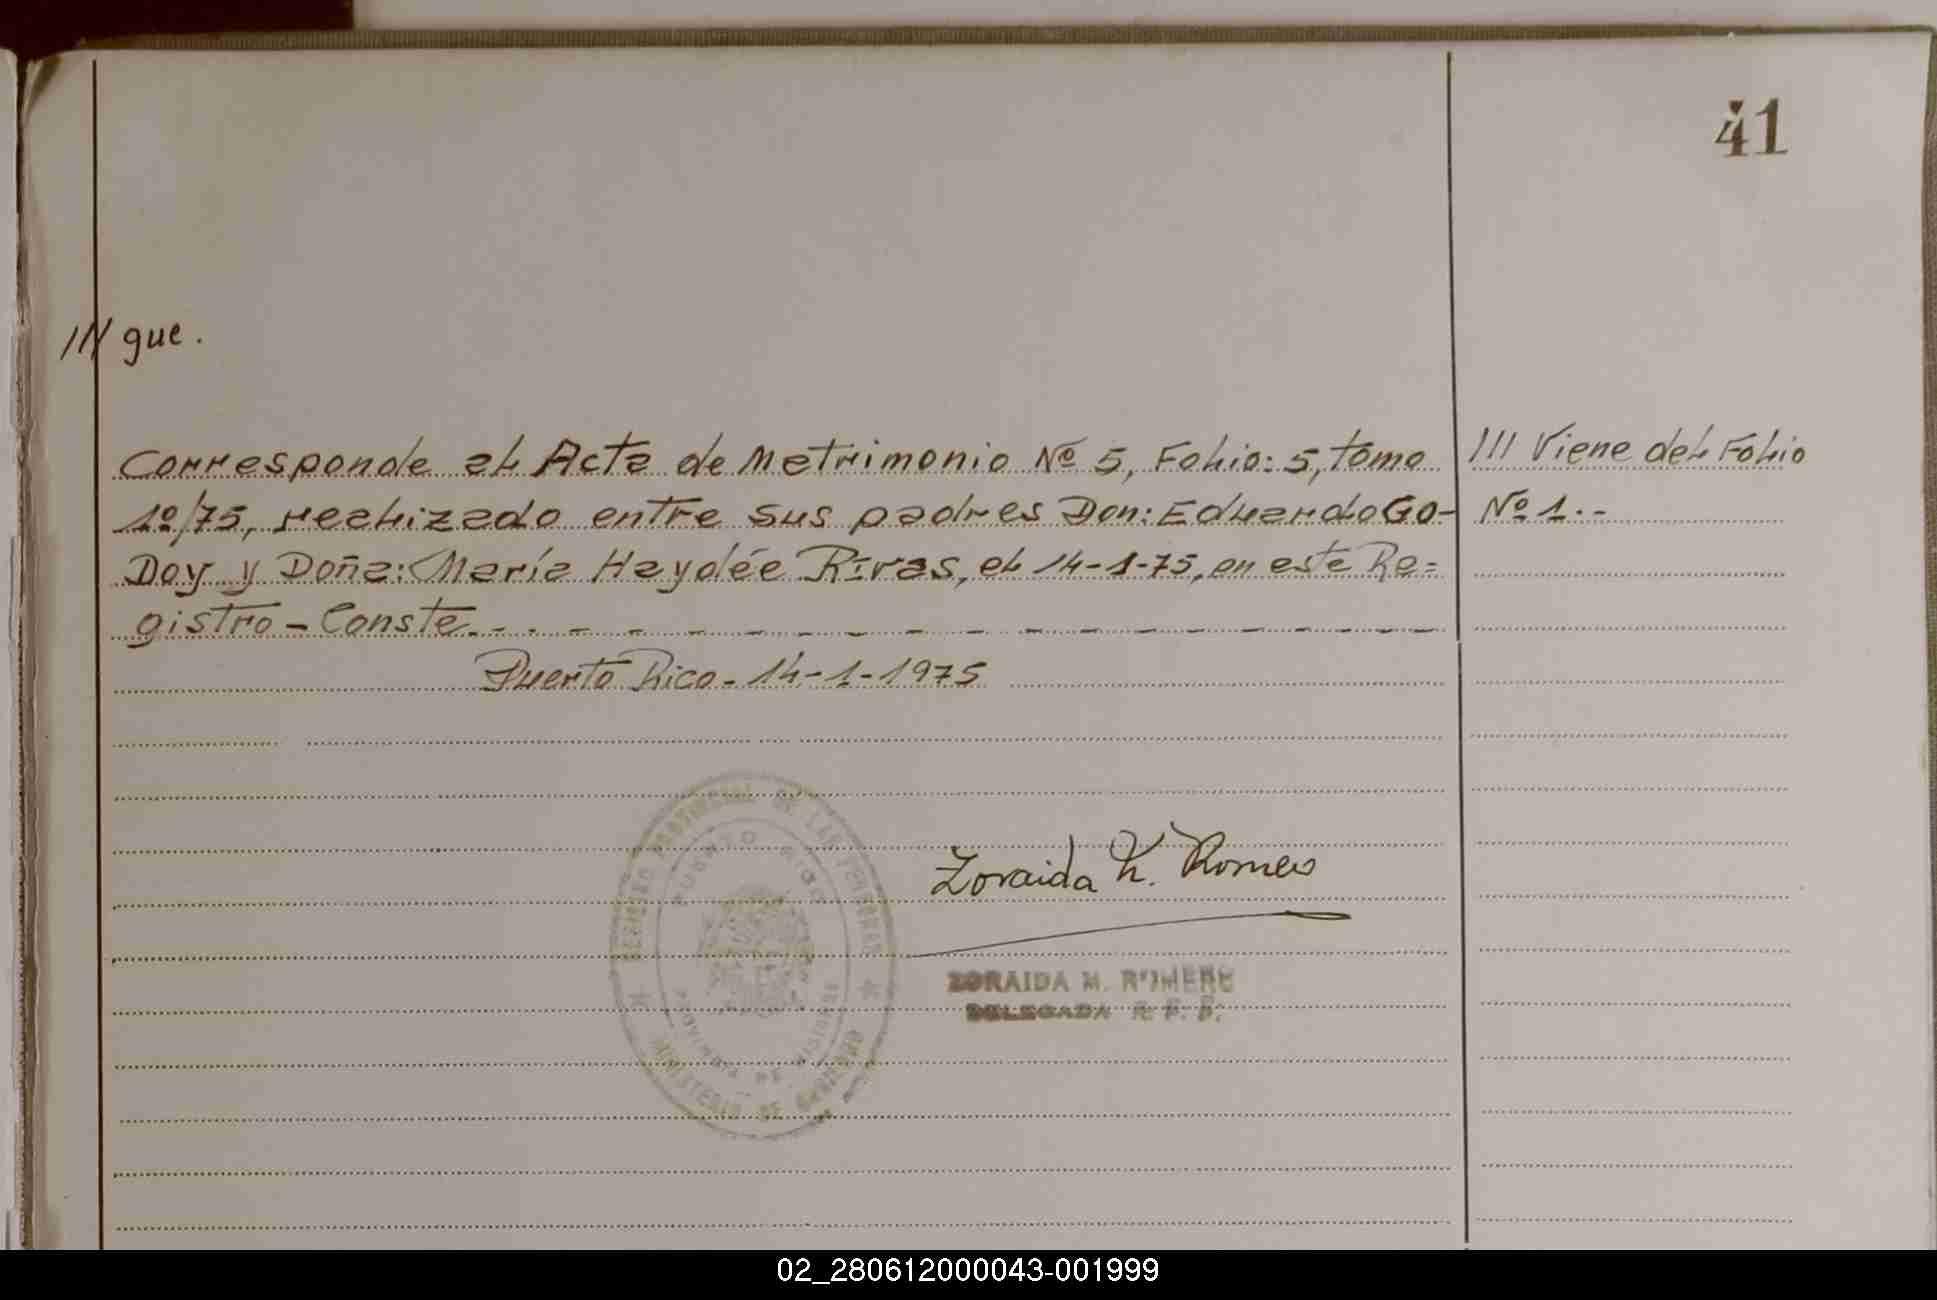 41
/// gue.
Corresponde al Acta de Matrimonio Nº 5, Folio: 5, tomo
1º/75, realizado entre sus padres Don: Eduardo Go-
Doy y Doña: María Haydée Rivas, el 14-1-75, en este Re=
gistro - Conste.- . - - - - - - - - - - - - - -
Puerto Rico - 14-1-1975
/// Viene del Folio
Nº 1.-
REGISTRO PROVINCIAL DE LAS PERSONAS
PUERTO RICO
PROVINCIA DE MISIONES
MINISTERIO DE GOBIERNO
Zoraida M. Romero
ZORAIDA M. ROMERO
DELEGADA R. P. P.
02_280612000043-001999